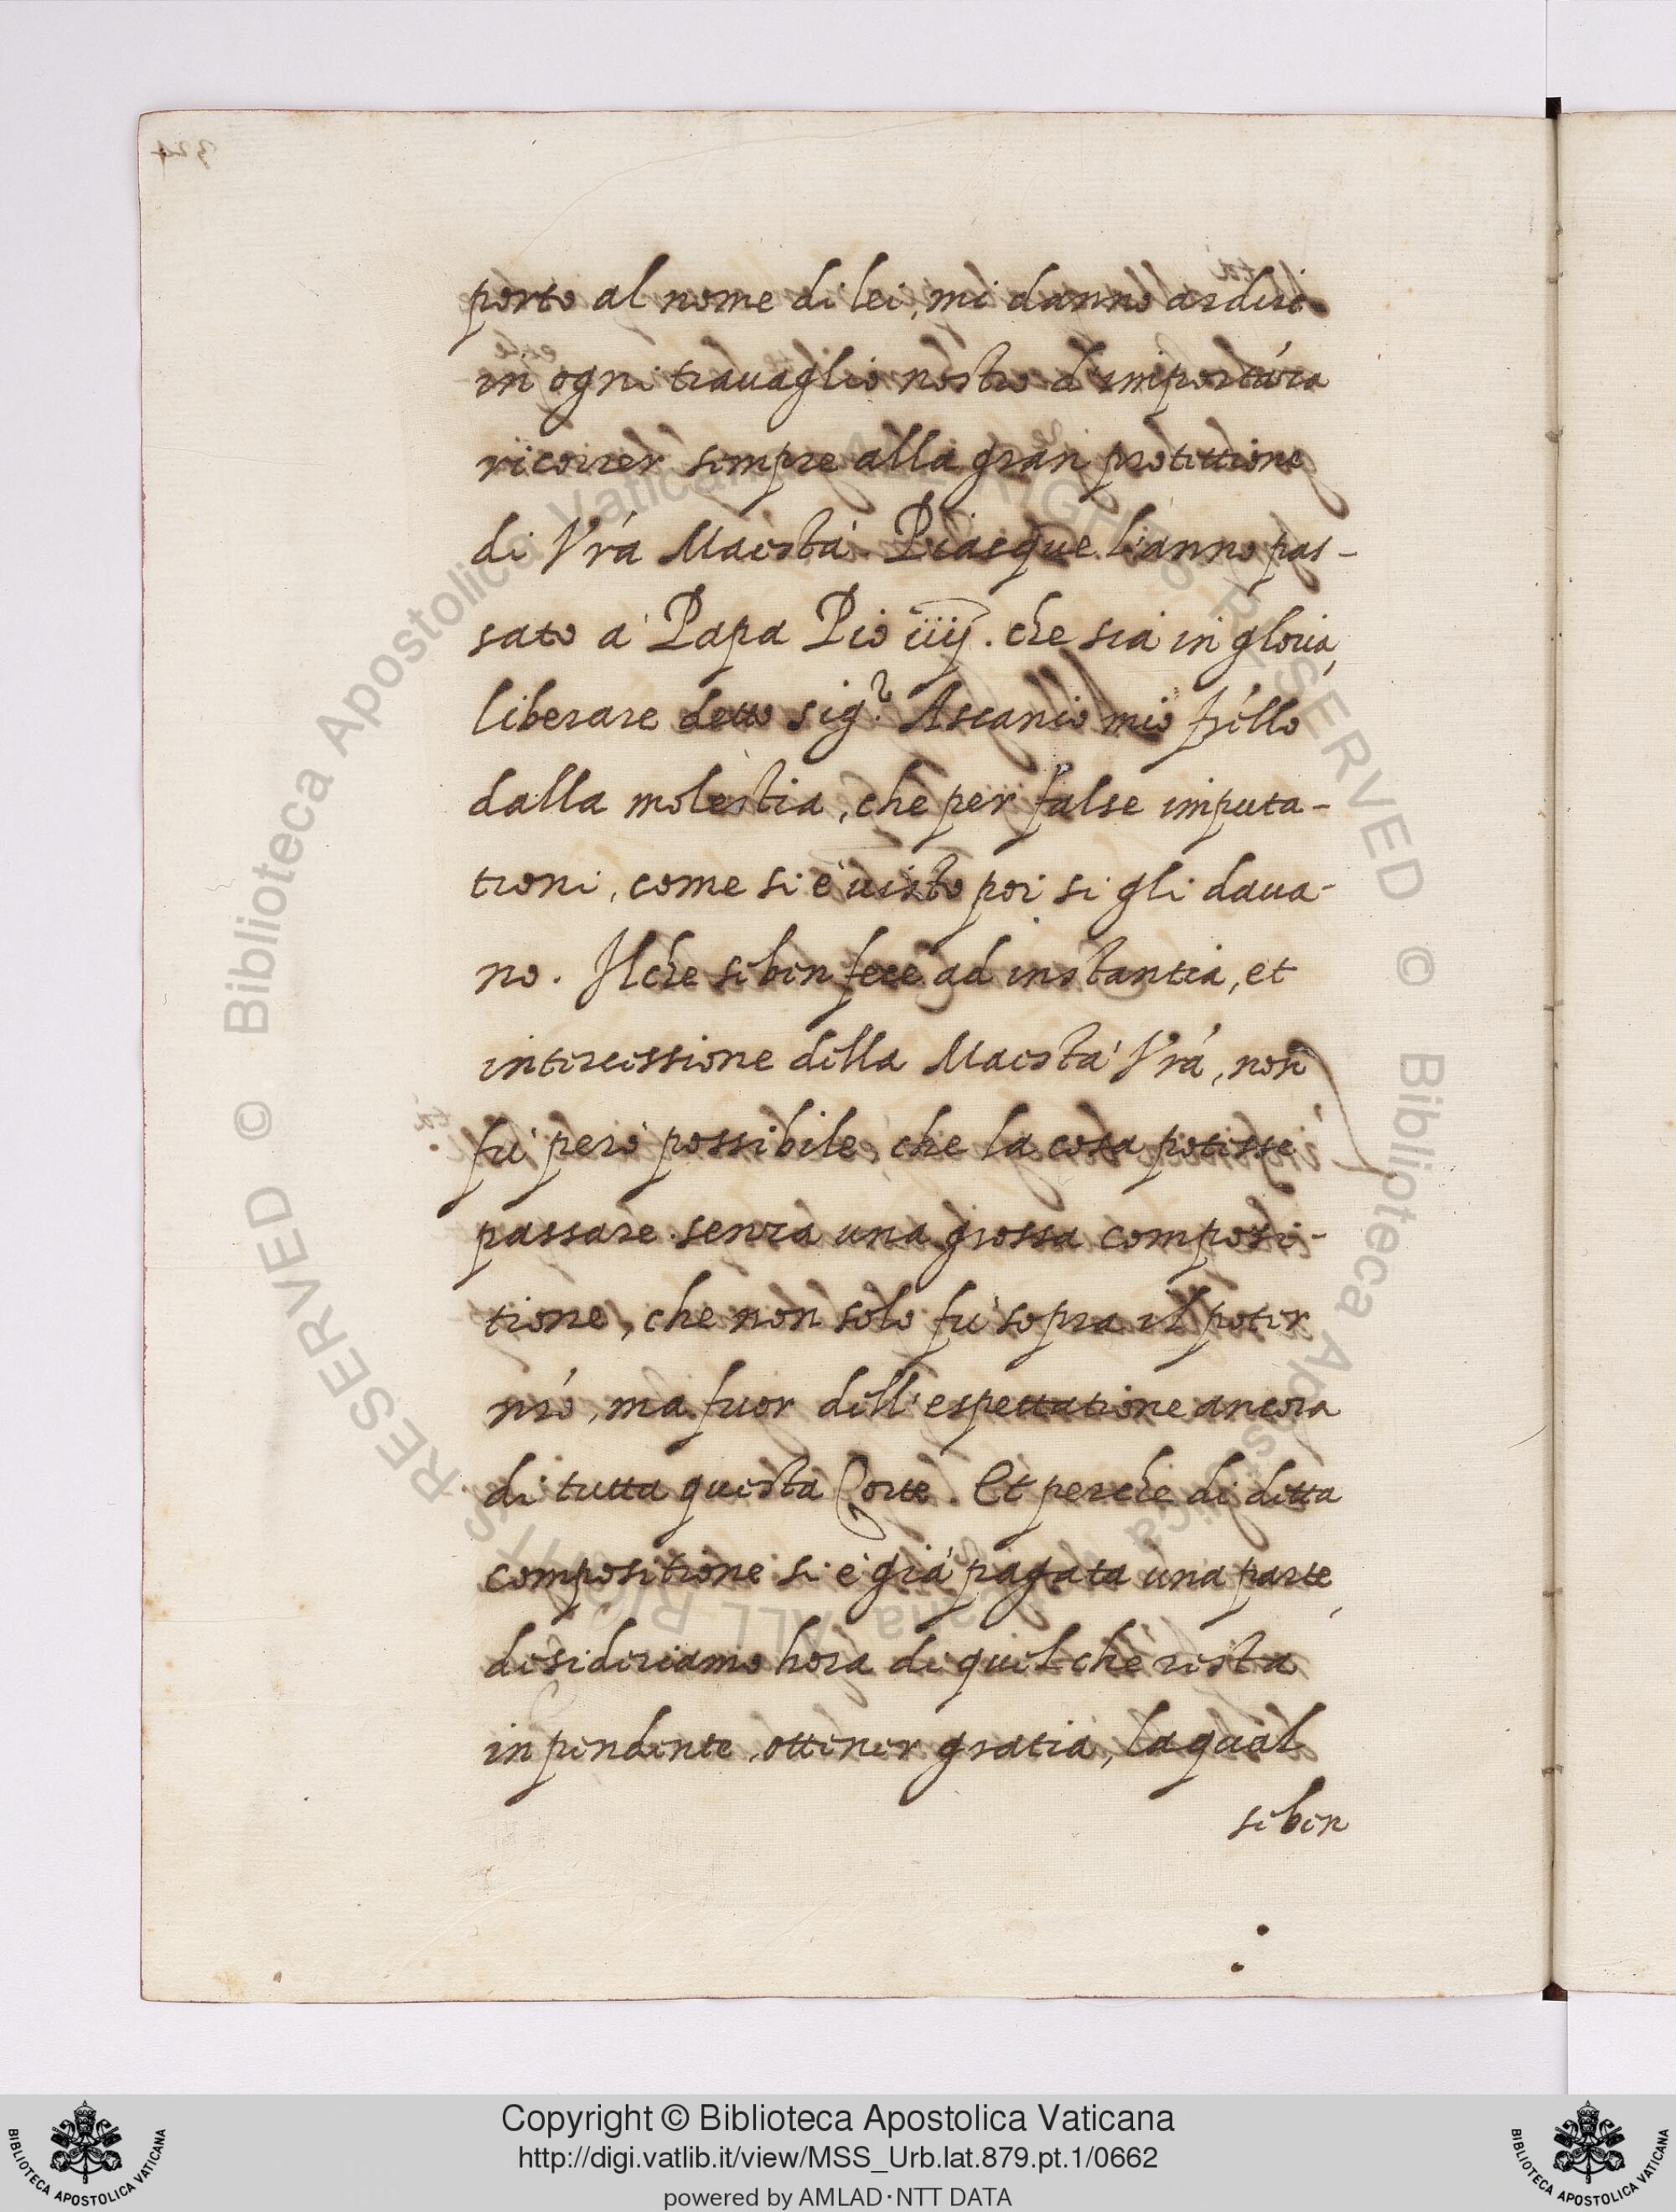 porto al nome di lei, mi danno ardire
in ogni trauaglio nostro d'importáza
ricorrer sempre alla gran protettione
di Vrá Maestà. Piacque l'anno pas-
sato à Papa Pio iiij. che sia in gloria,
liberare detto sig.r Ascanio mio fréllo
dalla molestia, che per false imputa-
tioni, come si è uisto poi si gli daua-
no. Ilche siben fece ad instantia, et
intercessione della Maestà Vrá, non
fù però possibile, che la cosa potesse
passare senza una grossa composi-
tione, che non solo fù sopra il poter
nró, ma fuor dell'espettatione ancora
di tutta questa Corte. Et perche di detta
compositione si è già pagata una parte,
desideriamo hora di quel che resta
in pendente, ottener gratia, la qual
siben
Copyright © Biblioteca Apostolica Vaticana
http://digi.vatlib.it/view/MSS_Urb.lat.879.pt.1/0662
powered by AMLAD·NTT DATA
BIBLIOTECA APOSTOLICA VATICANA
BIBLIOTECA APOSTOLICA VATICANA
© Biblioteca Apostolica Vaticana ALL RIGHTS RESERVED
© Biblioteca Apostolica Vaticana ALL RIGHTS RESERVED